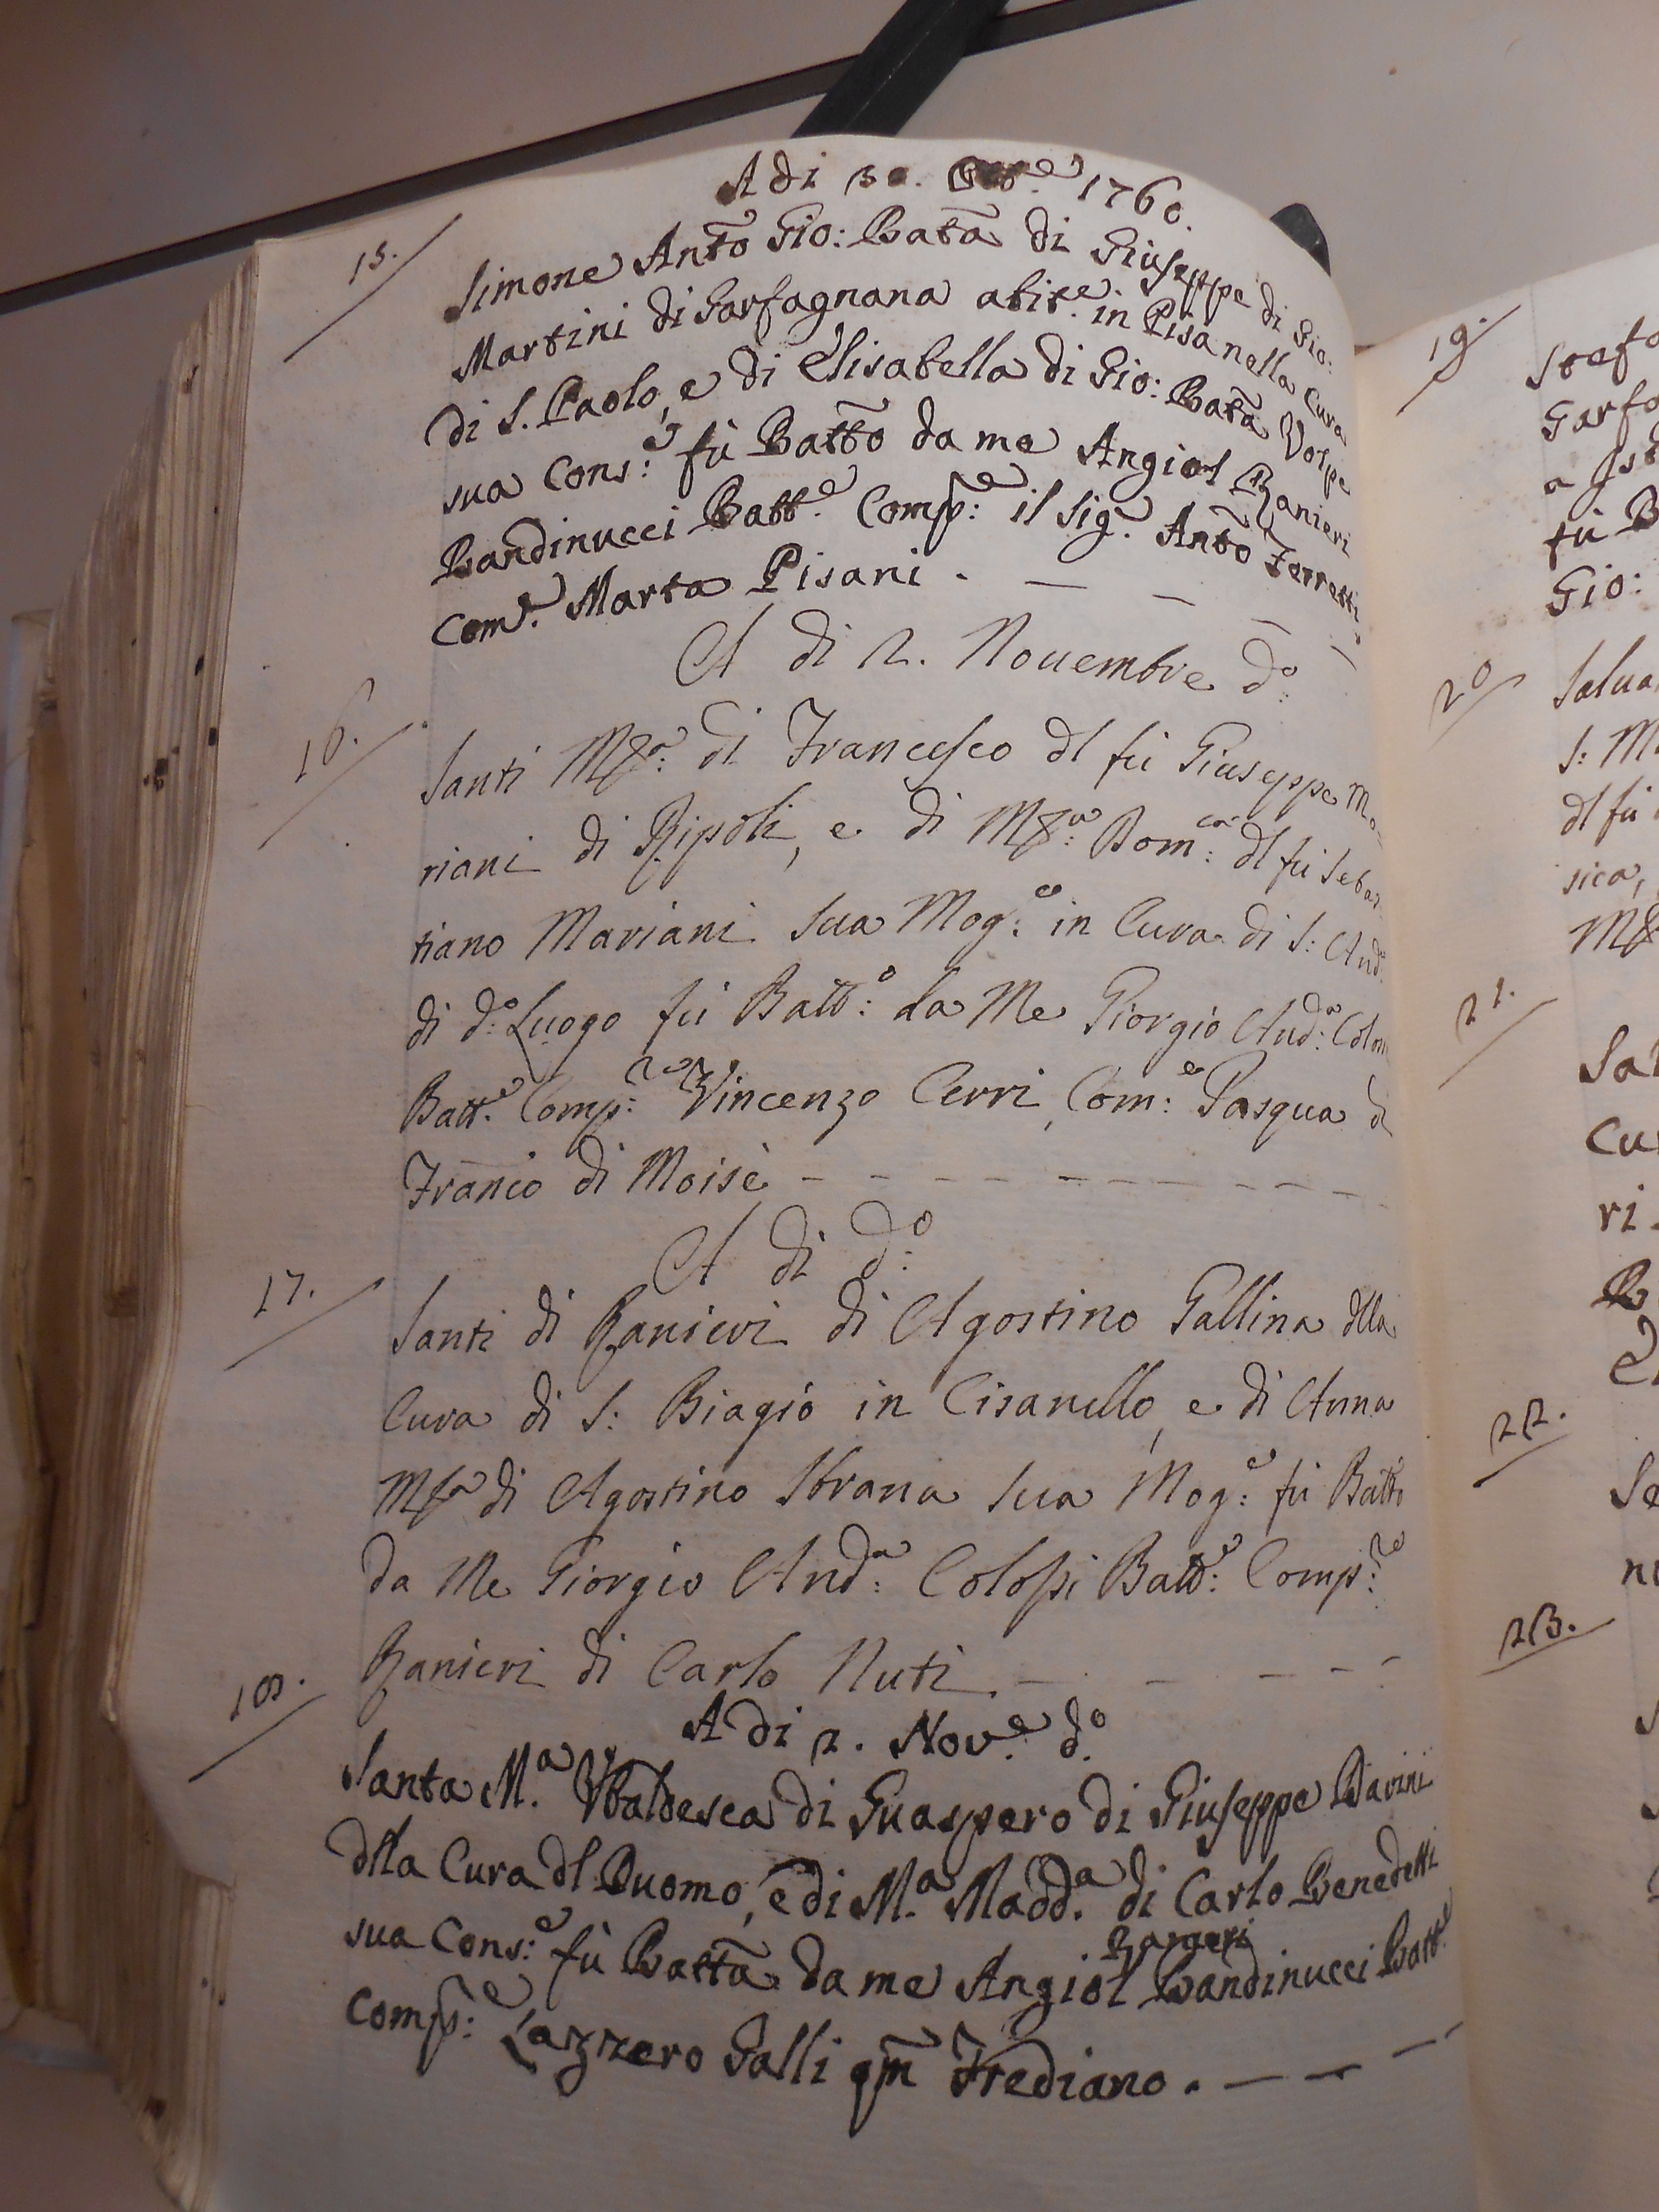 A di 30. Ott.e 1760.
15.
Simone Anto Gio: Bata di Giuseppe di Gio:
Martini di Garfagnana abit.e in Pisa nella Cura
di S. Paolo, e di Elisabella di Gio: Bata Volpe
sua Cons:e fù Batto da me Angiol Ranieri
Bandinucci Batt.e Comp:e il Sig.r Anto Ferretti,
Com.e Marta Pisani.
A di 2. Nouembre d:o
16.
Santi M:a di Francesco dl fù Giuseppe Ma
riani di Ripoli, e di M:a Dom:ca dl fù Sebas
tiano Mariani sua Mog:e in Cura di S: And:a
di d:o Luogo fù Batt:o da Me Giorgio And:a Colos
Batt.e Comp:re Vincenzo Cerri, Com:e Pasqua d
Franco di Moisè
A di d:o
17.
Santi di Ranieri di Agostino Gallina dlla
Cura di S: Biagio in Cisanello, e di Anna
M.a di Agostino Strana sua Mog:e fù Batto
da Me Giorgio And:a Colossi Batt:e Comp:re
Ranieri di Carlo Nuti.
A di 2. Nov.e d.o
18.
Santa M.a Vbaldesca di Guaspero di Giuseppe Davini
dlla Cura dl Duomo, e di M.a Madd.a di Carlo Benedetti
sua Cons:e fù Batta da me Angiol Ranieri Bandinucci Batt.e
Comp:e Lazzero Galli qm Frediano.
19.
Stefa
Garfa
a
fù B
Gio:
20
Salua
S: M
dl fù
sica,
M
21.
Sa
Cu
ri
22.
Se
23.